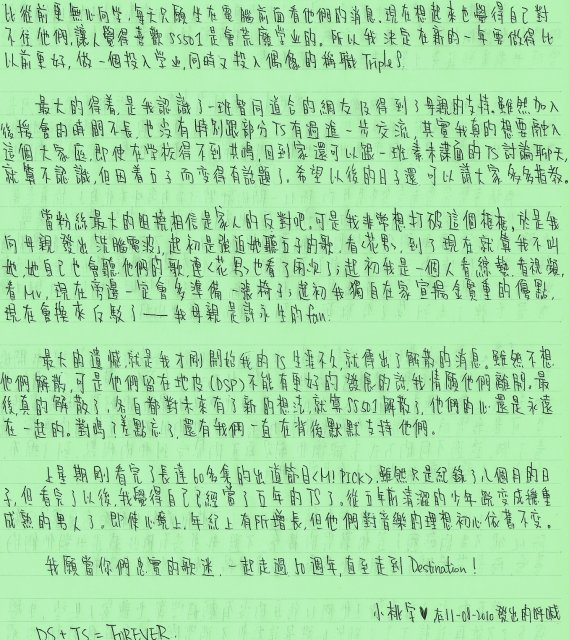 比從前更無心向學,每天只顧坐在電腦前面看他們的消息.現在想起來也覺得自己對
不住他們,讓人覺得喜歡SS501是會荒廢學業的。所以我決定在新的一年要做得比
以前更好,做一個投入學业,同時又投入偶像的稱職TripleS.
最大的得着,是我認識了一班智同道合的網友及得到了母親的支持.雖然加入
後援會的時間不長,也沒有特別跟部分TS有過進一步交流,其實我真的想要融入
這個大家庭.即使在学校得不到共鳴,回到家還可以跟一班素未謀面的TS討論聊天,
就算不認識,但因着五子而變得有話題了.希望以後的日子還可以請大家多多指教.
當粉絲最大的阻撓相信是家人的反對吧.可是我非常想打破這個框框,於是我
向母親發出洗腦電波,起初是強迫她聽五子的歌,看<花男>,到了現在就算我不叫
她,她自己也會聽他們的歌,連<花男>也看了兩次了;起初我是一個人看綜藝,看視頻,
看MV,現在旁邊一定會多準備一張椅子;起初我獨自在家宣揚金賢重的優點,
現在會換來反駁了——我母親是許永生的fan.
最大的遺憾,就是我才剛開始我的TS生涯不久,就傳出了解散的消息.雖然不想
他們解散,可是他們留在地皮(DSP)不能有更好的發展的話,我情願他們離開.最
後真的解散了,各自都對未來有了新的想法,就算SS501解散了,他們的心還是永遠
在一起的。對嗎了差點忘了,還有我們一直在背後默默支持他們。
上星期剛看完了長達60多集的出道節目<M!PICK>,雖然只是紀錄了八個月的日
子,但看完了以後,我覺得自己已經當了五年的TS了。從五年前清澀的少年蛻變成穩重
成熟的男人了。即使心境上,年紀上有所增長,但他們對音樂的理想初心依舊不变。
我願當你們忠實的歌迷,一起走過50週年,直至走到Destination!
小桃子♥在11-08-2010發出的呼喊
DS+TS=FOREVER.